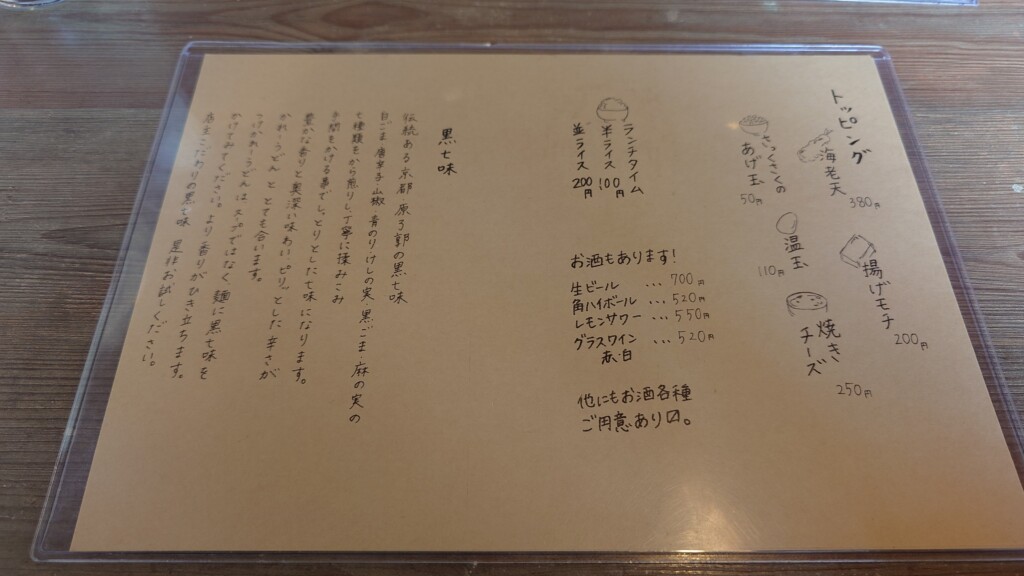 トッピング
海老天
380円
揚げモチ
200円
さっくさくの
あげ玉
50円
温玉
110円
焼き
チーズ
250円
ランチタイム
半ライス 100円
並ライス 200円
お酒もあります!
生ビール ... 700円
角ハイボール ... 520円
レモンサワー ... 550円
グラスワイン ... 520円
赤・白
他にもお酒各種
ご用意あり〼。
黒七味
伝統ある京都 原了郭の黒七味
白ごま 唐辛子 山椒 青のり けしの実 黒ごま 麻の実の
七種類をから煎りし丁寧に揉みこみ
手間をかける事でしっとりとした七味になります。
豊かな香りと奥深い味わい、ピリッとした辛さが
かれーうどんととても合います。
つけかれーうどんはスープではなく麺に黒七味を
かけてみてください。より香りがひき立ちます。
店主こだわりの黒七味 是非お試しください。